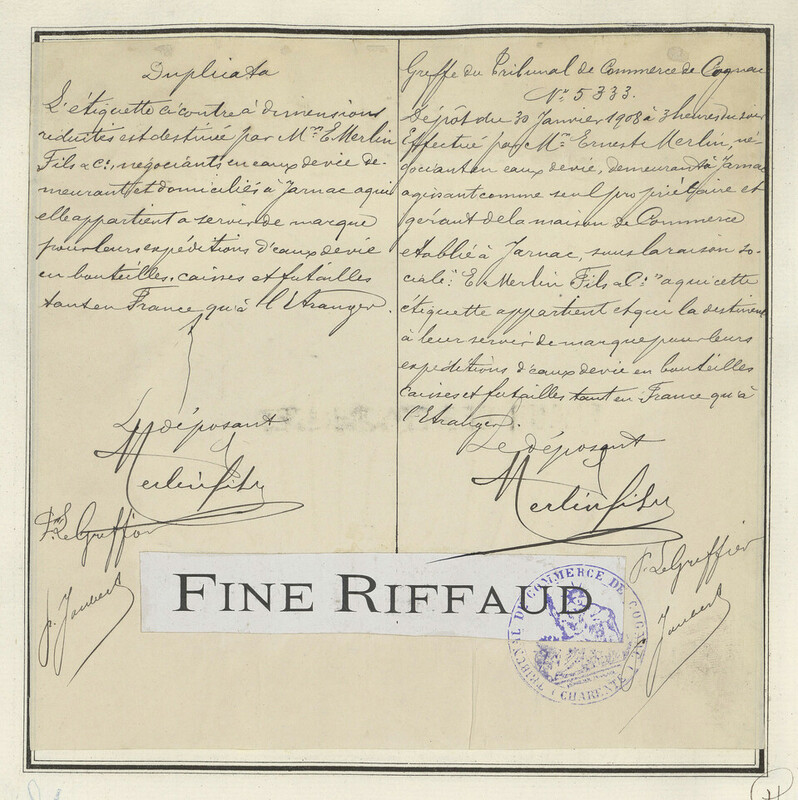 Duplicata
L'étiquette ci contre à dimensions
réduites est destinée par Mrs E. Merlin
Fils & Cie, négociants en eaux de vie de-
meurant et domiciliés à Jarnac a qui
elle appartient a servir de marque
pour leurs expéditions d'eaux de vie
en bouteilles, caisses et futailles
tant en France qu'à l'Etranger.
Le déposant
Merlin fils
P. Le Greffier
J. Joubert
Greffe du Tribunal de Commerce de Cognac
No 5.333.
Dépôt du 30 Janvier 1908 à 3 heures du soir
Effectué par Mr Ernest Merlin, né-
gociant en eaux de vie, demeurant à Jarnac
agissant comme seul propriétaire et
gérant de la maison de Commerce
etablie à Jarnac, sous la raison so-
ciale "E. Merlin Fils & Cie" a qui cette
étiquette appartient et qui la destinent
à leur servir de marque pour leurs
expéditions d'eaux de vie en bouteilles
caisses et futailles tant en France qu'à
l'Etranger.
Le déposant
Merlin fils
P. Le Greffier
Joubert
FINE RIFFAUD
TRIBUNAL DE COMMERCE DE COGNAC
(CHARENTE)